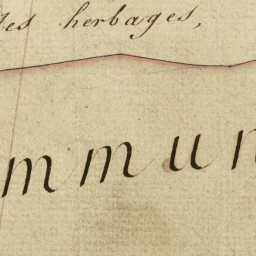 des herbages,
mmun